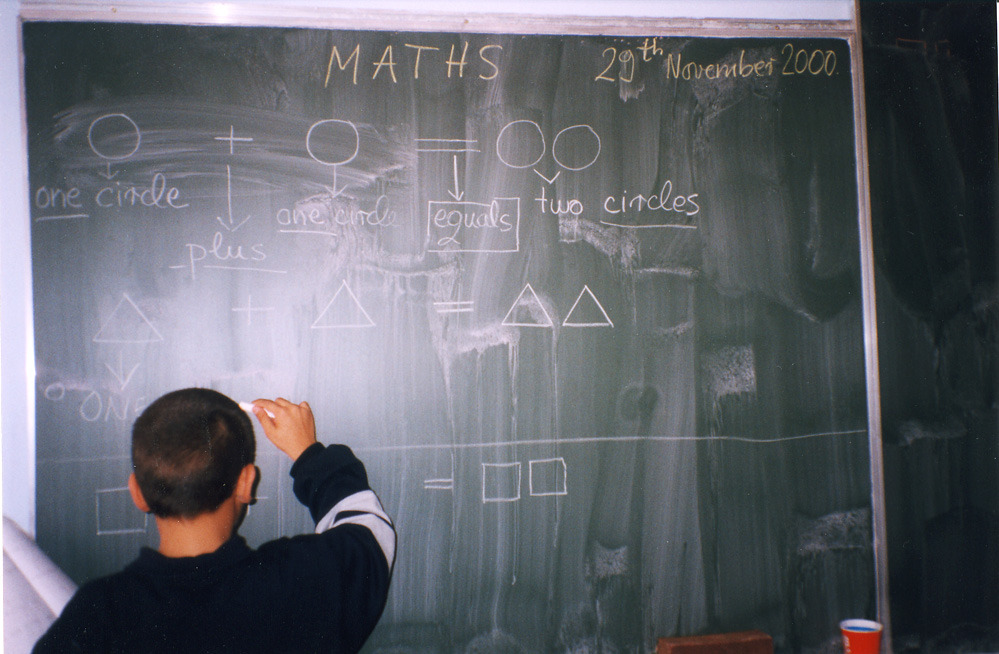 MATHS 29th November 2000.
+ =
one circle plus one circle equals two circles
+ =
ONE
=